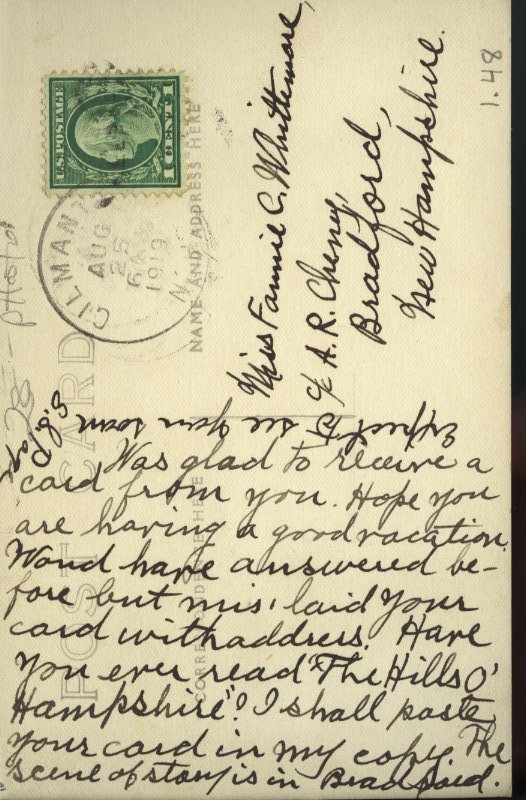 1.48
U.S. POSTAGE
1 CENT 1
GILMANT
AUG
25
1913
N.
NAME AND ADDRESS HERE
POST CARD
CORRE
E HERE
Miss Fannie C. Whittemore,
℅ A.R. Cheney,
Bradford,
New Hampshire.
Photo
28
Was glad to receive a
card from you. Hope you
are having a good vacation.
Woud have answered be-
fore but mis'laid your
card with address. Have
you ever read "The Hills O'
Hampshire"? I shall paste
your card in my copy. The
scene of story is in Bradford.
Expect to see you soon